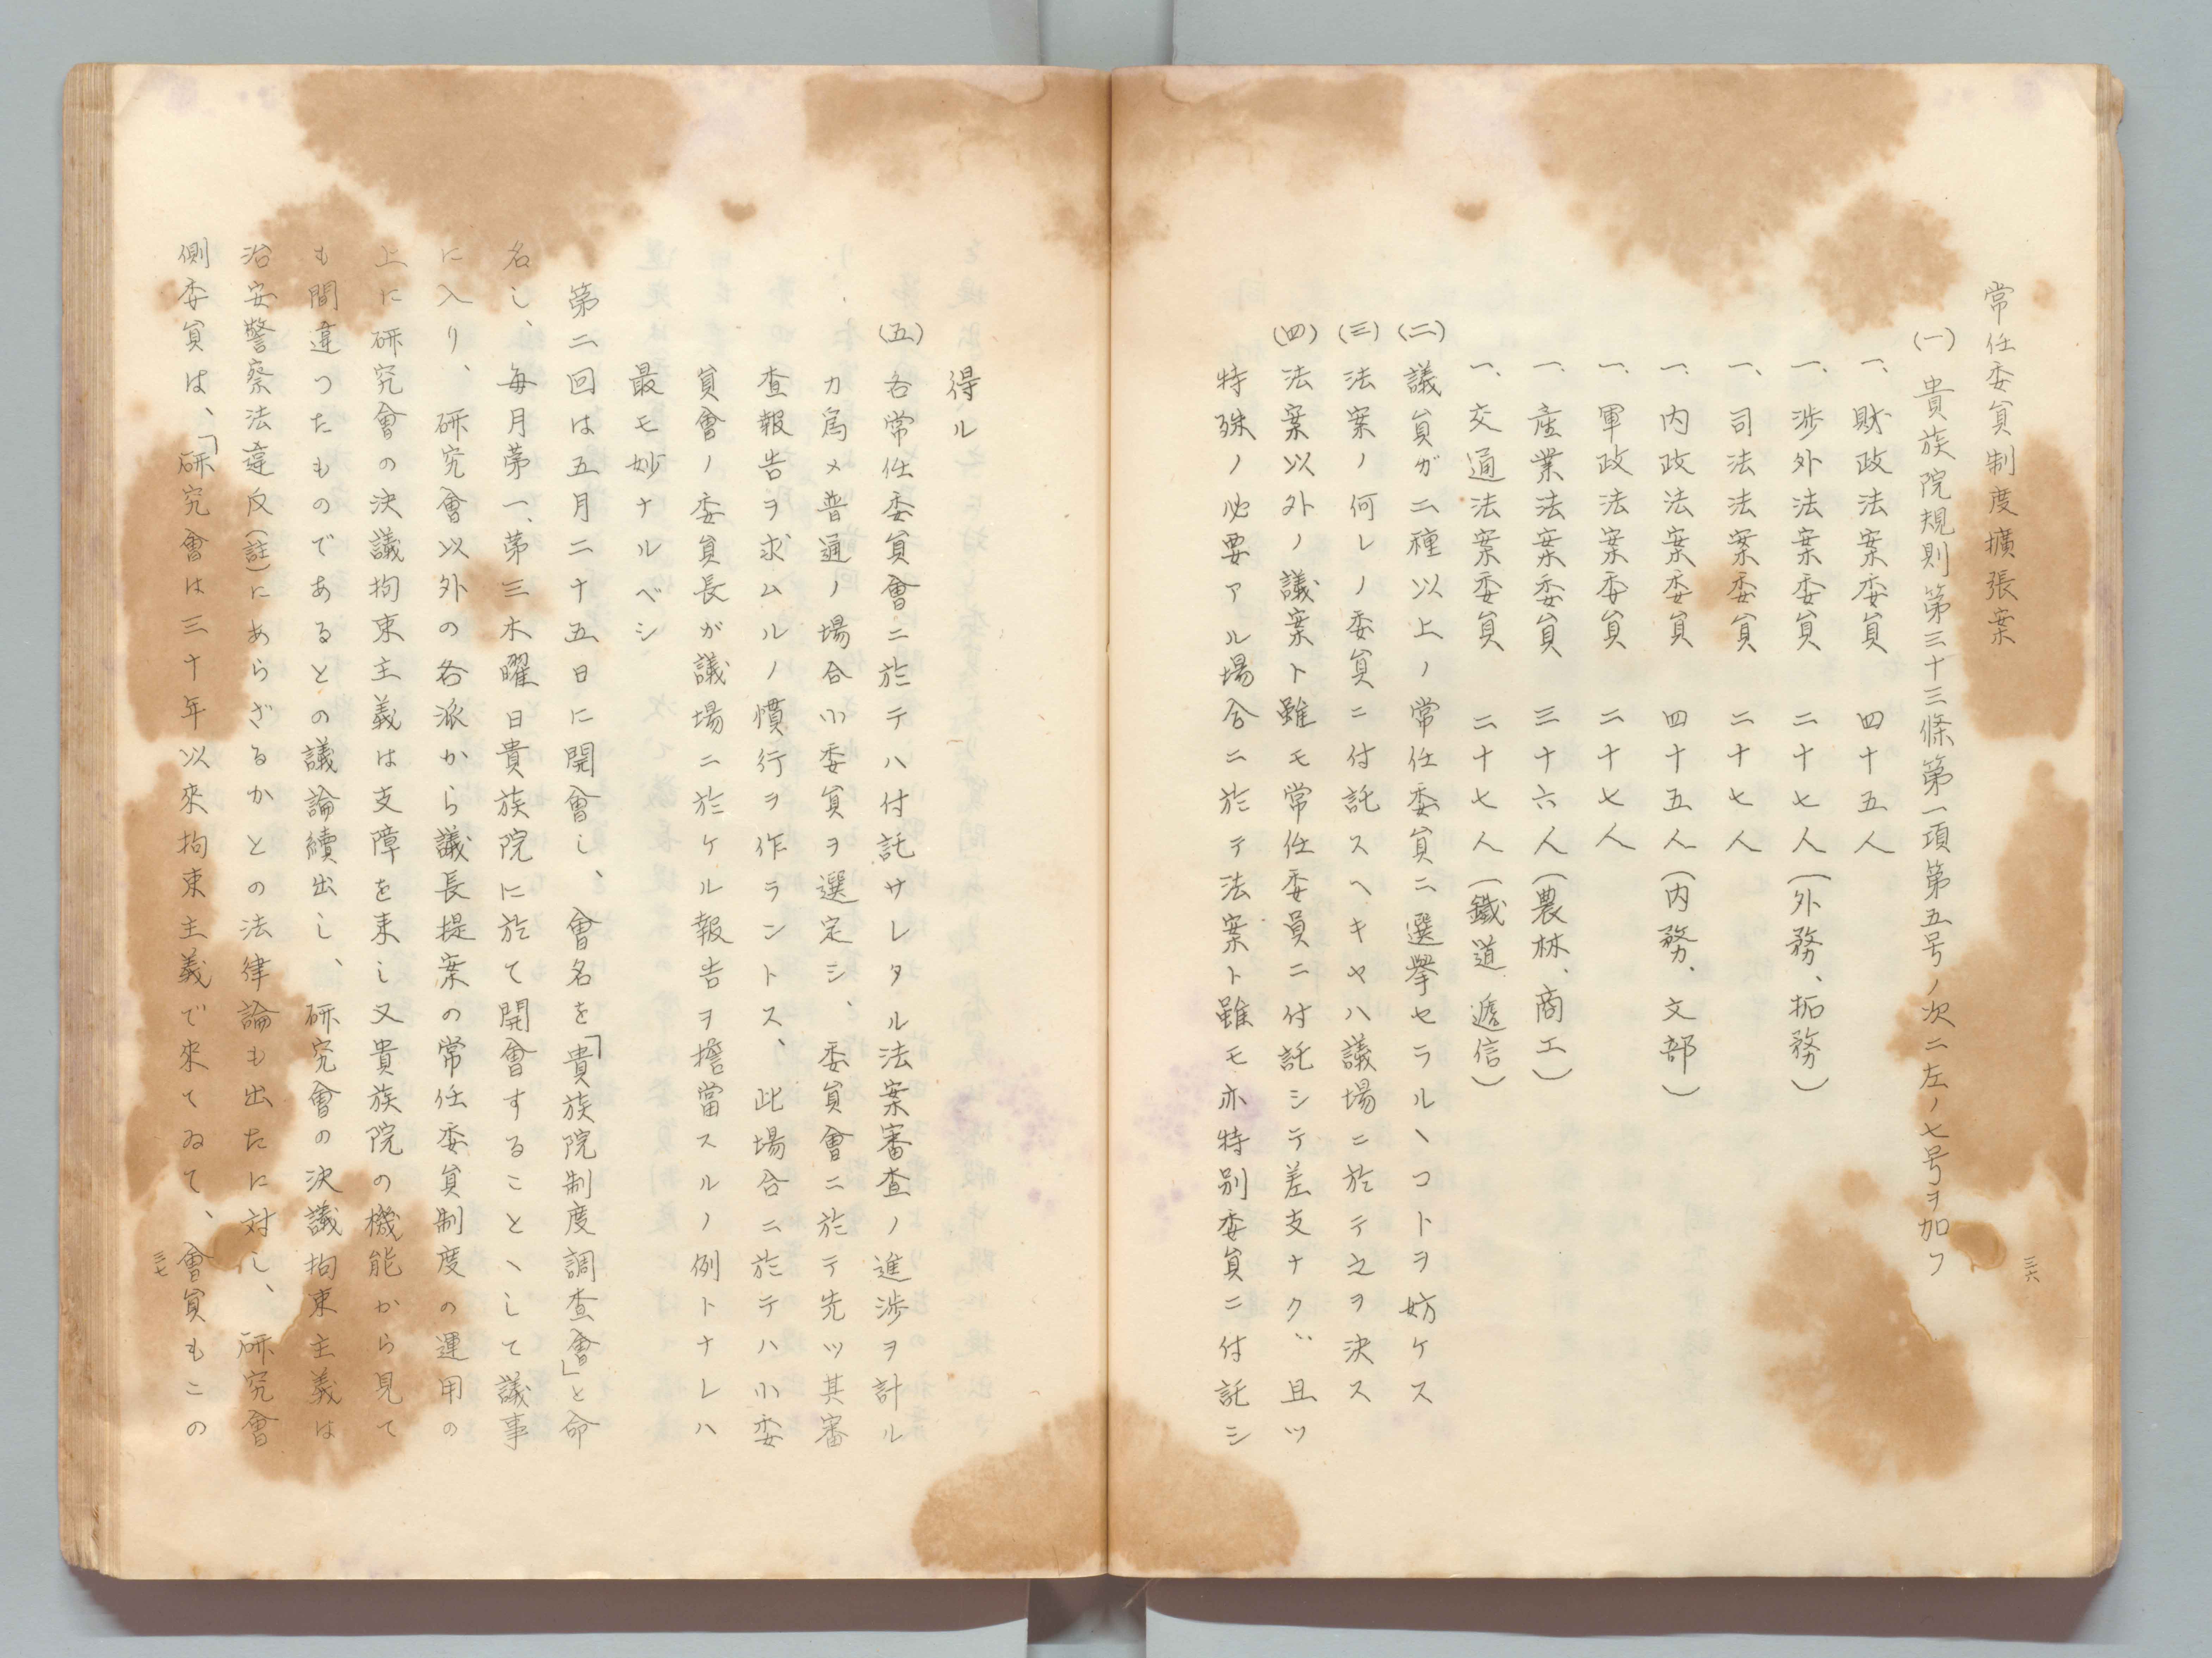 常任委員制度擴張案
(一)貴族院規則第三十三條第一項第五号ノ次ニ左ノ七号ヲ加フ
一、財政法案委員　四十五人
一、渉外法案委員　二十七人(外務、拓務)
一、司法法案委員　二十七人
一、内政法案委員　四十五人(内務、文部)
一、軍政法案委員　二十七人
一、産業法案委員　三十六人(農林、商工)
一、交通法案委員　二十七人(鐵道　遞信)
(二)議員ガ二種以上ノ常任委員ニ選擧セラルヽコトヲ妨ケス
(三)法案ノ何レノ委員ニ付託スヘキヤハ議場ニ於テ之ヲ決ス
(四)法案以外ノ議案ト雖モ常任委員ニ付託シテ差支ナク、且ツ
特殊ノ必要アル場合ニ於テ法案ト雖モ亦特別委員ニ付託シ
三六
得ル
(五)各常任委員會ニ於テハ付託サレタル法案審査ノ進渉ヲ計ル
カ爲メ普通ノ場合小委員ヲ選定シ、委員會ニ於テ先ツ其審
査報告ヲ求ムルノ慣行ヲ作ラントス、此場合ニ於テハ小委
員會ノ委員長が議場ニ於ケル報告ヲ擔當スルノ例トナレハ
最モ妙ナルベシ
第二回は五月二十五日に開會し、會名を「貴族院制度調査會」と命
名し、毎月第一、第三木曜日貴族院に於て開會することヽして議事
に入り、研究會以外の各派から議長提案の常任委員制度の運用の
上に研究會の決議拘束主義は支障を来し又貴族院の機能から見て
も間違つたものであるとの議論續出し、研究會の決議拘束主義は
治安警察法違反(註)にあらざるかとの法律論も出たに対し、研究會
側委員は、「研究會は三十年以來拘束主義で來てゐて、會員もこの
三七